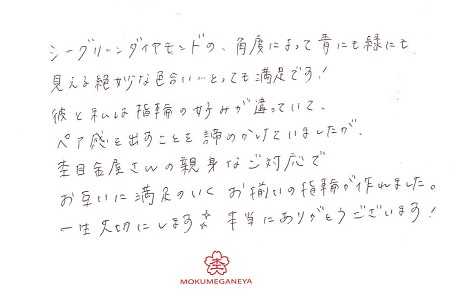 シーグリーンダイヤモンドの、角度によって青にも緑にも
見える絶妙な色合い…とっても満足です!
彼と私は指輪の好みが違っていて、
ペア感を出すことを諦めかけていましたが、
杢目金屋さんの親身なご対応で
お互いに満足のいく お揃いの指輪が作れました。
一生大切にします 本当にありがとうございます!
杢
MOKUMEGANEYA